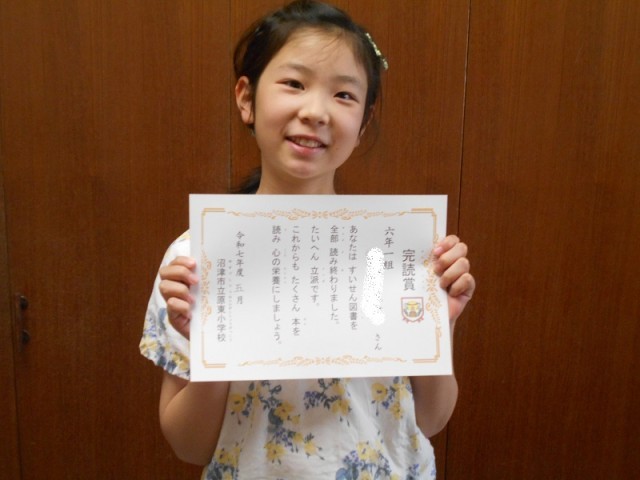 完読賞
六年一組
さん
あなたは すいせん図書を
全部 読み終わりました。
たいへん 立派です。
これからも たくさん 本を
読み 心の栄養にしましょう。
令和七年度 五月
沼津市立原東小学校